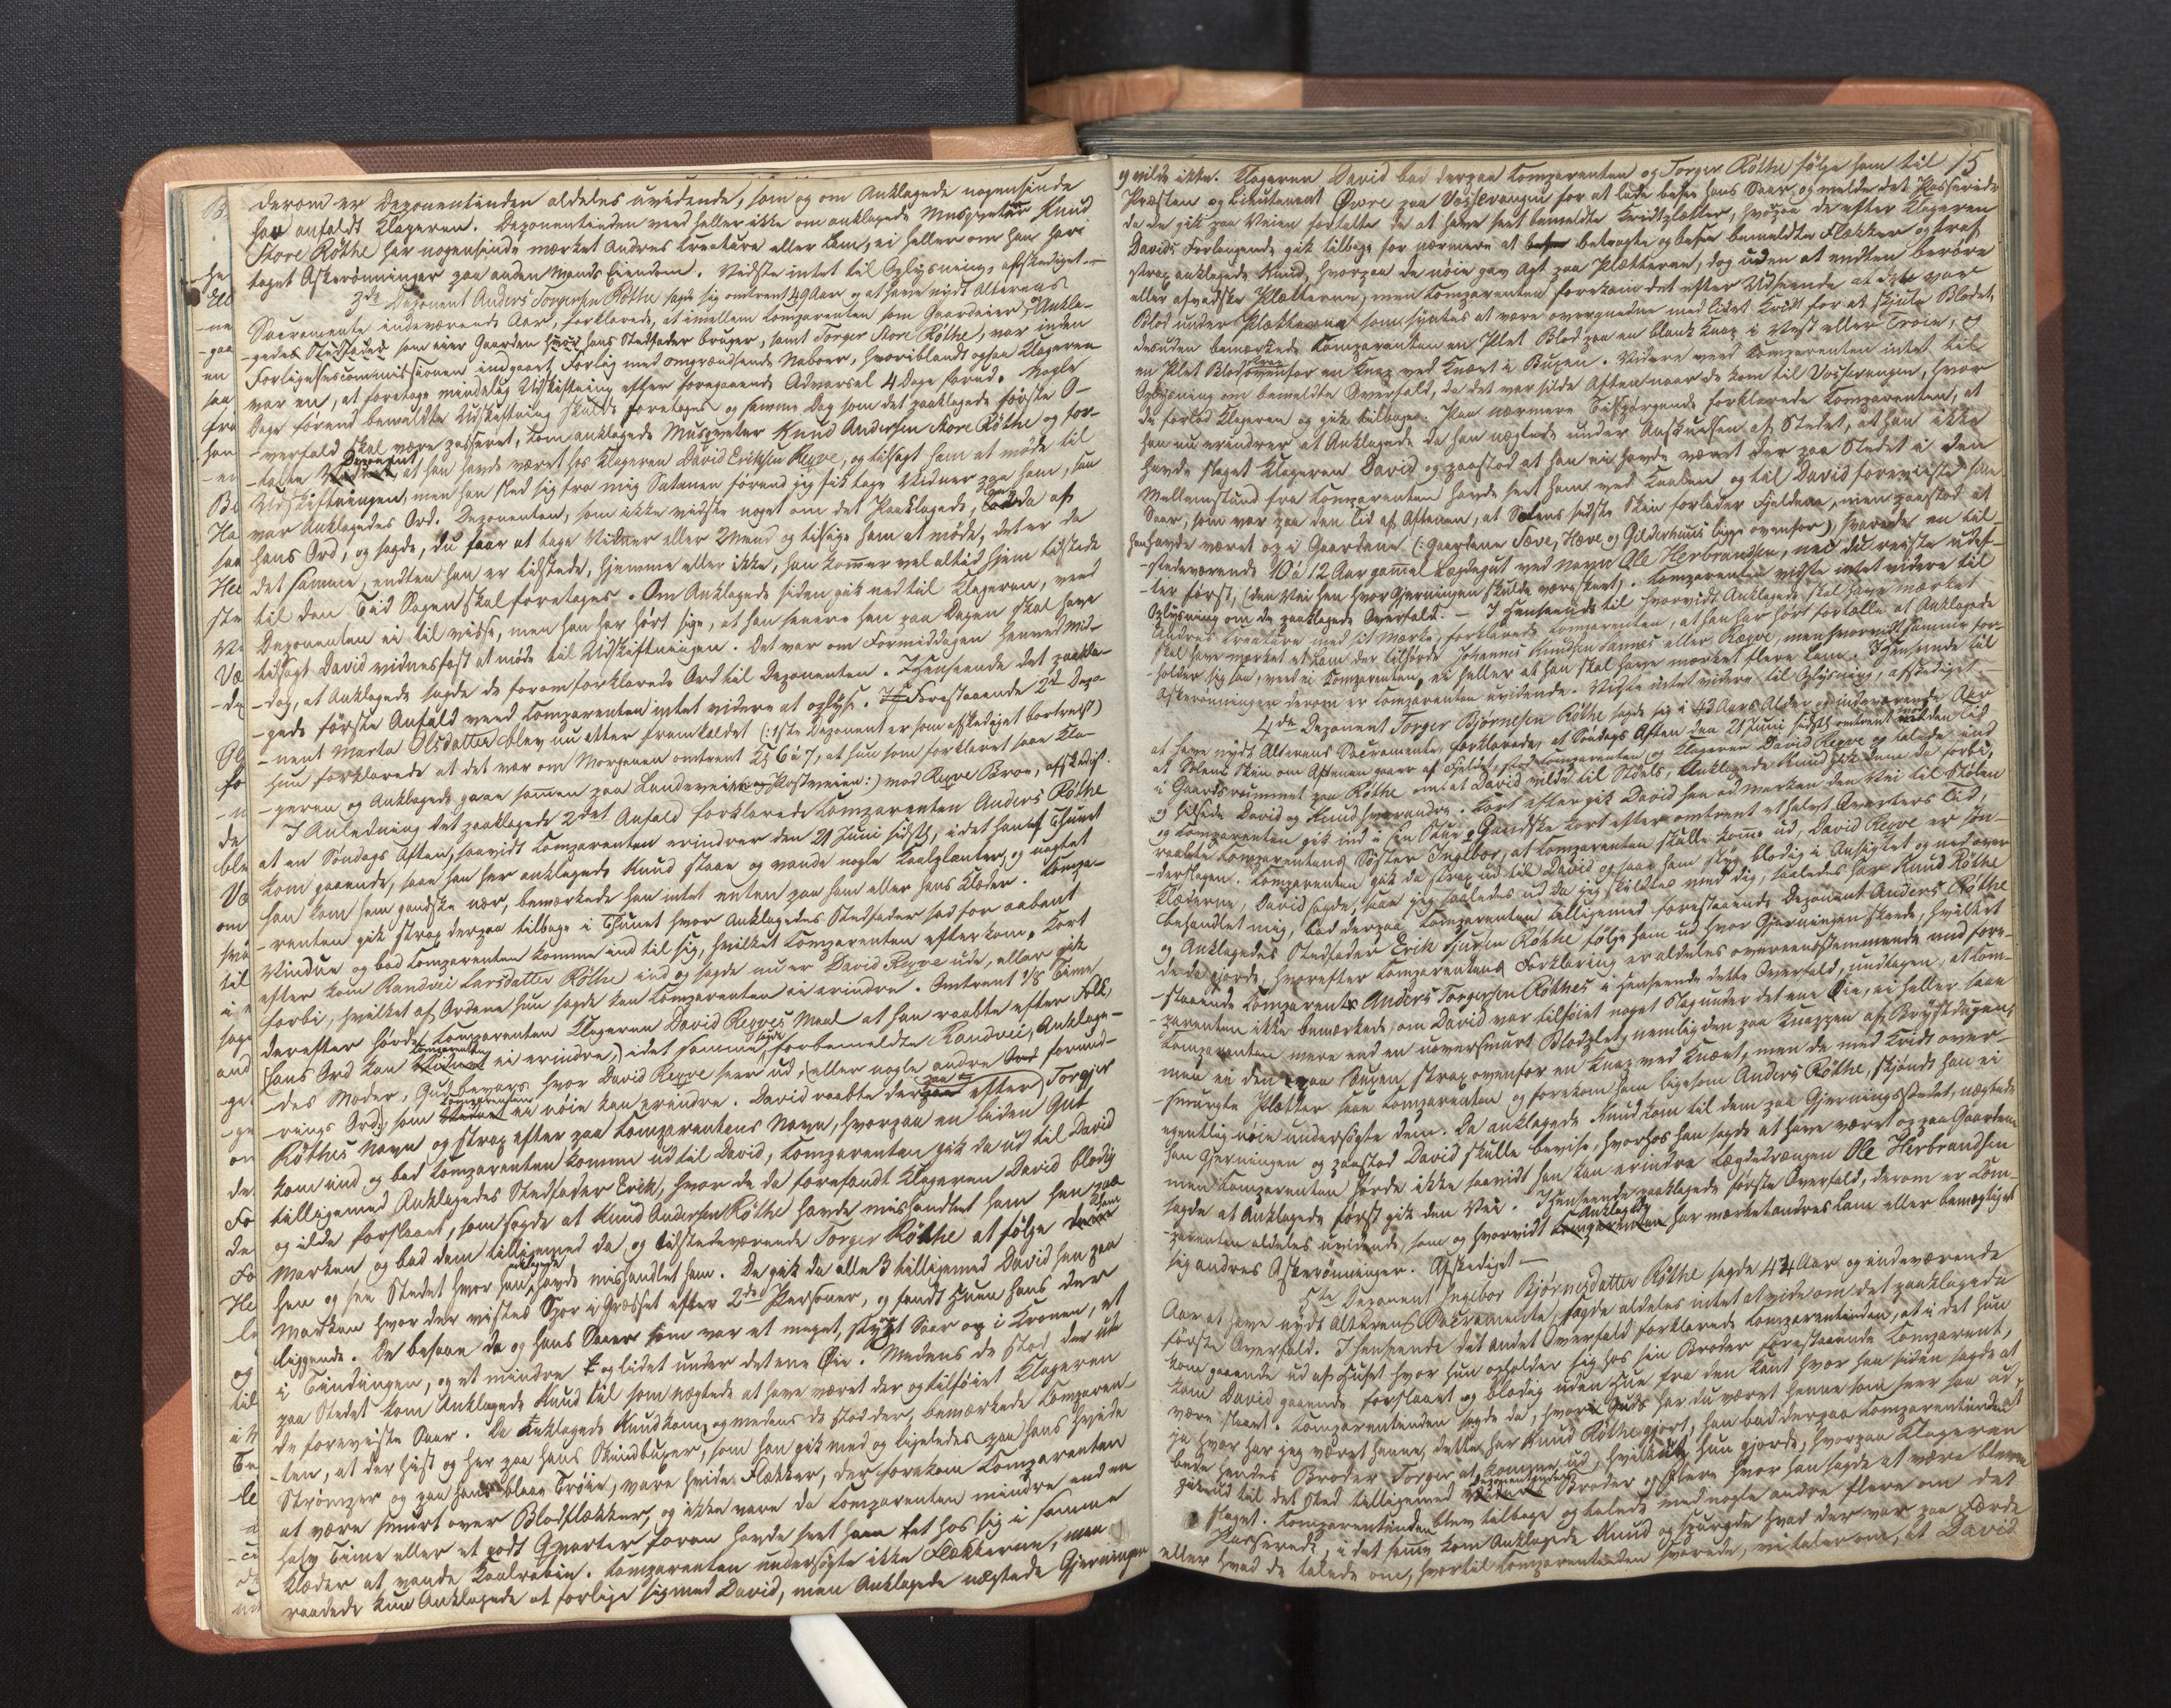 derom er Deponentinden aldeles uvidende, som og om Anklagede nogensinde
har anfaldt Klageren. Deponentinden veed heller ikke om anklagede Musqveteer Knud
Store Röthe har nogensinde mærket Andres Creature eller Lam, ei heller om han har
taget Askerönninger paa anden Mands Eiendom. Vidste intet til Oplysning, afskediget.—
3de Deponent Anders Torgersen Röthe sagde sig omtrent 49 Aar og at have nydt Alterens
Sacramente indeværende Aar, forklarede, at imellem Comparenten som Gaardeier, Ankla-
-gedes Stedfader som eier Gaarden hans Stedfader bruger, samt Torger Store Röthe, var inden
Forligelsescommissionen indgaaet Forlig med omgrændsende Naboer, hvoriblandt ogsaa Klageren
var en, at foretage mindelig Udskiftning efter foregaaende Advarsel 4 Dage forud. Nogle
Dage förend bemeldte Udskiftning skulde foretages og samme Dag som det paaklagede förste O-
-verfald skal være passeret, kom anklagede Musqveteer Knud Andersen Store Röthe og for-
-talte Deponent, at han havde været hos Klageren David Eriksen Rexve, og tilsagt ham at möde til
Udskiftningen, men han sled sig fra mig Satanen förend jeg fik tage Vidner paa ham, saa
var Anklagedes Ord. Deponenten, som ikke vidste noget om det Paaklagede, da af
hans Ord, og sagde, du faar at tage Vidner eller 2 Mend og tilsige ham at möde, det er da
det samme, endten han er tilstede, hjemme eller ikke, han kommer vel altid hjem tilstede
til den Tiid Sagen skal foretages. Om Anklagede siden gik ned til Klageren, veed
Deponenten ei til visse, men han har hört sige, at han senere hen paa Dagen skal have
tilsagt David vidnesfast at möde til Udskiftningen. Det var om Formiddagen henved Mid-
-dag, at Anklagede sagde de foromforklarede Ord til Deponenten. I Henseende det paakla-
-gede förste Anfald veed Comparenten intet videre at oplyse. Forestaaende 2d Depo-
-nent Marta Olsdatter blev nu atter fremkaldet (: 1ste Deponent er som afskediget bortreist)
Hun forklarede at det var om Morgenen omtrent Kl 6 à 7, at hun som forklaret saae Kla-
-geren og Anklagede gaae sammen paa Landeveien og Postveien:) mod Rexve Broe, afskediget.
I Anledning det paaklagede 2det Anfald forklarede Comparenten Anders Röthe
at en Söndags Aften, saavidt Comparenten erindrer den 21 Juni sidstl, idet han af Thunet
kom gaaende, saae han her anklagede Knud staae og vande nogle Kaalplanter, og uagtet
han kom ham gandske nær, bemærkede han intet enten paa ham eller hans Klæder. Compa-
-renten gik strax derpaa tilbage i Thunet hvor Anklagedes Stedfader sad for aabent
Vindue og bad Comparenten komme ind til sig, hvilket Comparenten efterkom. Kort
efter kom Randvei Larsdatter Röthe ind og sagde nu er David Rexve ude, eller gik
forbi, hvilket af Ordene hun sagde kan Comparenten ei erindre. Omtrent 1/8 Time
derefter hörde Comparenten Klageren David Rexves Maal at han raabte efter Folk,
(hans Ord kan Comparenten ei erindre,) idet samme sagde forbemeldte Randvei, Anklage-
-des Moder, Gud bevars hvor David Rexve seer ud, (eller nogle andre forund-
-rings Ord) som Comparenten ei nöie kan erindre. David raabte derpaa efter Torger
Röthes Navn og strax efter paa Comparentens Navn, hvorpaa en liden Gut
kom ind og bad Comparenten komme ud til David, Comparenten gik da ud til David
tilligemed Anklagedes Stedfader Erik, hvor de da forefandt Klageren David blodig
og ilde forslaaet, som sagde at Knud Andersen Röthe havde mishandlet ham hen paa
Marken og bad dem tilligemed da og tilstedeværende Torger Röthe at fölge ham
hen og see Stedet hvor anklagede havde mishandlet ham. De gik da alle 3 tilligemed David hen paa
Marken hvor der vistes Spor i Græsset efter 2de Personer, og fandt Huen hans der
liggende. De besaae da og hans Saar som var et meget, stygt Saar op i Kronen, et
i Tindingen, og et mindre og lidet under det ene Öie. Medens de stod der ude
paa Stedet kom Anklagede Knud til som nægtede at have været der og tilföiet Klageren
de foreviste Saar. Da Anklagede Knud kom, og medens de stod der, bemærkede Comparen-
-ten, at der hist og her paa hans Skindbuxer, som han gik med og ligeledes paa hans hvide
Strömper og paa hans blaae Tröie, vare hvide Flækker, der forekom Comparenten
at være smurt over Blodflækker, og ikke vare da Comparenten mindre end en
halv Time eller et godt Qvarter foran havde seet ham tæt hos sig i samme
Klæder at vande Kaalrabin. Comparenten undersögte ikke Flækkerne, men
raadede kun Anklagede at forlige sig med David, men Anklagede nægtede Gjerningen
15
og vilde ikke. Klageren David bad derpaa Comparenten og Torger Röthe fölge ham til
Præsten og Lieutenant Qvere paa Vossevangen for at lade besee hans Saar og melde det Passerede
da de gik paa Veien fortalte de at have seet bemeldte Kridtpletter, hvorpaa de efter Klageren
Davids Forlangende gik tilbage for nærmere at betragte og besee bemeldte Flækker og traf
strax anklagede Knud, hvorpaa de nöie gav Agt paa Pletterne, dog uden at endten beröre
eller afvadske Pletterne, men Comparenten forekom det efter Udseende at det var
Blod under Pletterne som syntes at være overgnedne med lidet Kridt for at skjule Blodet,
desuden bemærkede Comparenten en Plet Blod paa en blank Knap i Vest eller Tröie, og
en Plet Blod strax ovenfor en Knap ved Knæet i Buxen. Videre veed Comparenten intet til
Oplysning om bemeldte Overfald, da det var silde Aften naar de kom til Vossevangen, hvor
de forlod Klageren og gik tilbage. Paa nærmere Tilspörgende forklarede Comparenten, at
han nu erindrer at Anklagede da han nægtede under Anskuelsen af Stedet, at han ikke
havde slaget Klageren David og paastod at han ei havde været der paa Stedet i den
Mellemstund fra Comparenten havde seet ham ved Kaalen og til David foreviiste sine
Saar, som var paa den Tid af Aftenen, at Solens sidste Skin forlader Fjeldene, men paastod at
han havde været op i Gaardene (: Gaardene Sæve, Hæve og Gilderhuus ligge ovenfor), svarede en til-
-stedeværende 10 à 12 Aar gammel Lægdegut ved Navn Ole Herbrandsen, nei du reiste udef-
-ter först, (den Vei hen hvor Gjerningen skulde være skeet). Comparenten vidste intet videre til
Oplysning om de paaklagede Overfald.— I Henseende til hvorvidt Anklagede skal have mærket
Andres Creature med sit Mærke, forklarede Comparenten, at han har hört fortælle at Anklagede
skal have mærket et Lam der tilhörde Johannes Knudsen Sannes eller Rexve, men hvorvidt samme for-
-holder sig saa, veed ei Comparenten, ei heller at han skal have mærket flere Lam. I Henseende til
Askerönninger derom er Comparenten uvidende. Vidste intet videre til Oplysning, afskediget.—
4de Deponent Torger Björnesen Röthe sagde sig i 43 Aars Alder og indeværende Aar
at have nydt Alterens Sacramente, forklarede, at Söndags Aften den 21 Juni sidstl omtrent ved den Tid
at Solens Skin om Aftenen gaaer af Fjeldet, stod Comparenten og Klageren David Rexve og talede ind
i Gaardsrummet paa Röthe om at David vilde til Stöels, Anklagede Knud gik dem da forbi,
og hilsede David og Knud hverandre. Kort efter gik David hen ad Marken den Vei til Stölen
og Comparenten gik ind i sin Stue. Gandske kort efter omtrent et halvt Qvarters Tid
raabte Comparentens Söster Ingebor, at Comparenten skulle komme ud, David Rexve er sön-
-derslagen. Comparenten gik da strax ud til David og saae ham styg blodig i Ansigtet og ned over
Klæderne, David sagde, saae jeg saaledes ud da jeg skildtes med dig, saaledes har Knud Röthe
behandlet mig, bad derpaa Comparenten tilligemed forestaaende Deponent Anders Röthe
og Anklagedes Stedfader Erik Sjursen Röthe fölge ham ud hvor Gjerningen skeede, hvilket
de da gjorde, hvorefter Comparentens Forklaring er aldeles overeensstemmende med fore-
-staaende Comparents Anders Torgersen Röthes i Henseende dette Overfald, undtagen, at Com-
-parenten ikke bemærkede, om David var tilföiet noget Slag under det ene Öie, ei heller saae
Comparenten mere end en uoversmurt Blodplet, nemlig den paa Knappen af Brystdugen,
men ei den paa Buxen strax ovenfor en Knap ved Knæet, men de med Kridt over-
-smurgte Pletter saae Comparenten og forekom ham ligesom Anders Röthe, skjöndt han ei
egentlig nöie undersögte dem. Da anklagede Knud kom til dem paa Gjerningsstedet, nægtede
han Gjerningen og paastod David skulle bevise, hvorhos han sagde at have været op paa Gaardene
men Comparenten hörde ikke saavidt han kan erindre Lægdedrengen Ole Herbrandsen
sagde at Anklagede först gik den Vei. I Henseende paaklagede förste Overfald, derom er Com-
-parenten aldeles uvidende, som og hvorvidt Anklagede har mærket andres Lam eller bemægtiget
sig andres Askerönninger. Afskediget.—
5te Deponent Ingebor Björnesdatter Röthe sagde 44 Aar og indeværende
Aar at have nydt Alterens Sacramente, sagde aldeles intet at vide om det paaklagede
förste Overfald. I Henseende det andet Overfald forklarede Comparentinden, at i det hun
kom gaaende ud af Huset hvor hun opholder sig hos sin Broder forestaaende Comparent,
kom David gaaende forslaaet og blodig uden Hue fra den Kant hvor han siden sagde at
være slaaet. Comparentinden sagde da, hvor i Guds har du været henne som seer saa ud,
ja hvor har jeg været henne, dette har Knud Röthe gjort, han bad derpaa Comparentinden at
bede hendes Broder Torger at komme ud, hvilket hun gjorde, hvorpaa Klageren
gik til det Sted tilligemed Deponentindens Broder og flere hvor han sagde at være bleven
slaget. Comparentinden blev tilbage og talede med nogle andre flere om det
Passerede, i det samme kom Anklagede Knud og spurgde hvad der var paa Færde
eller hvad de talede om, hvortil Comparentinden svarede, vi taler om, at David